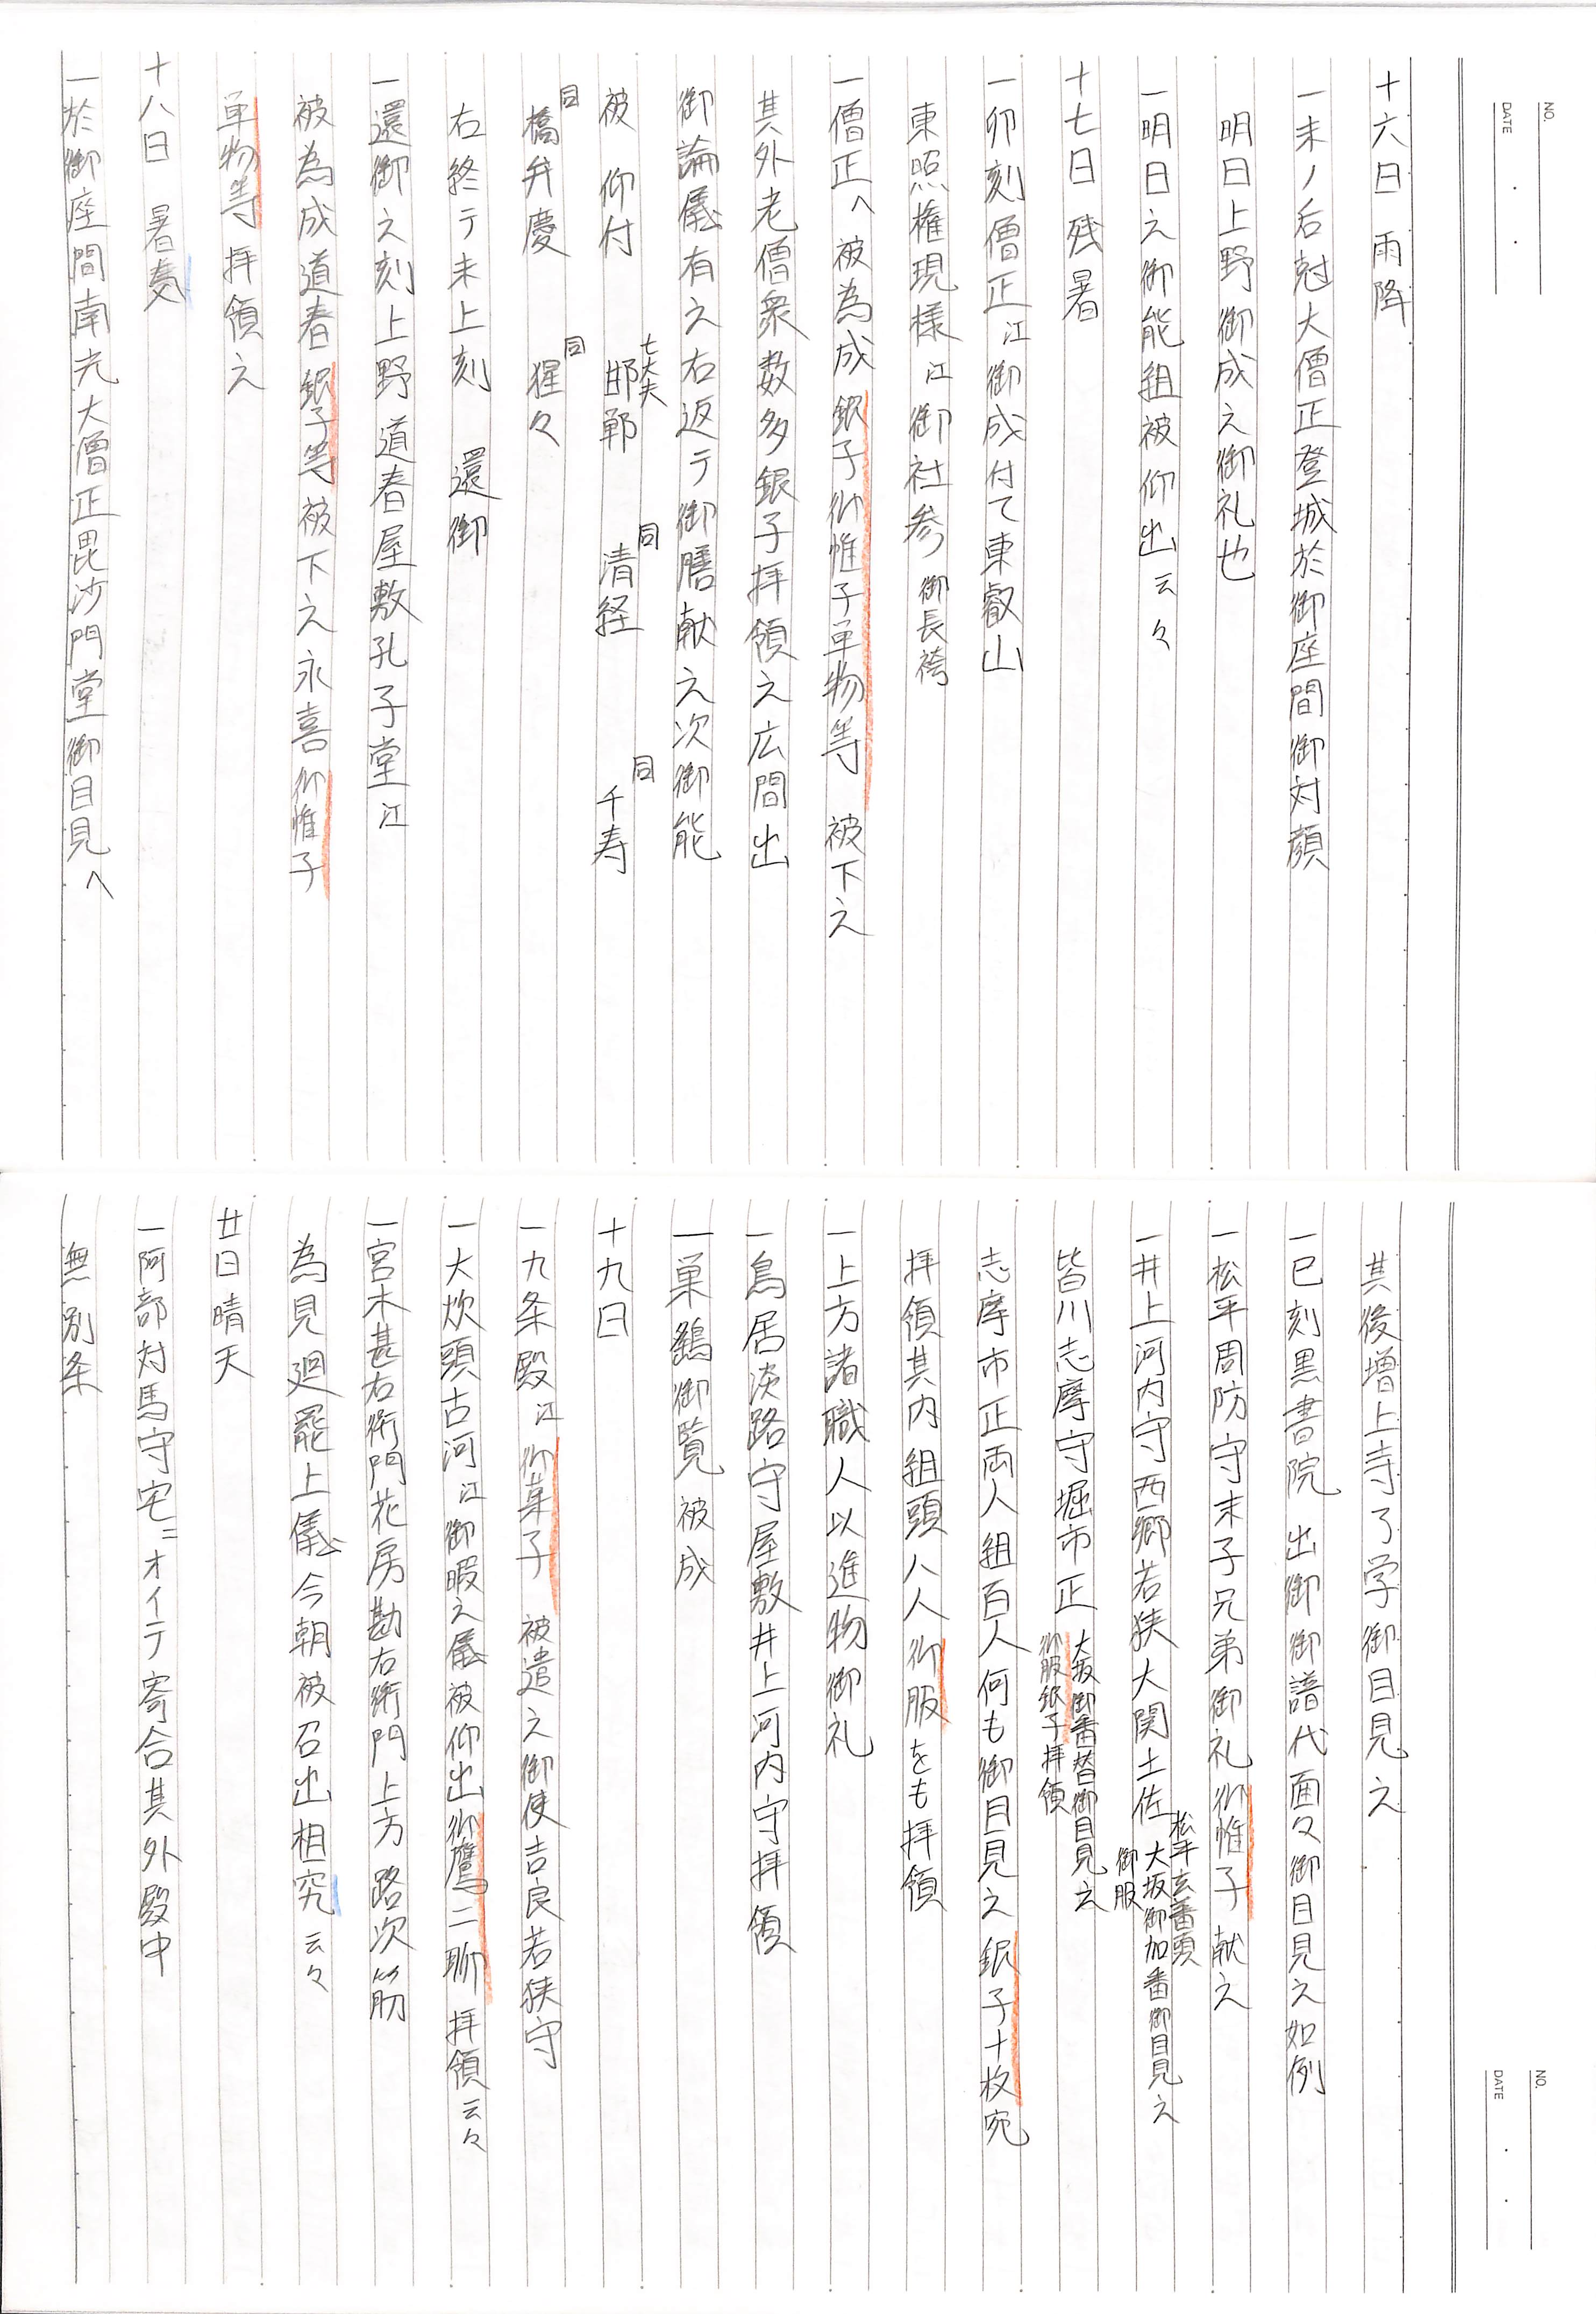 NO.
DATE
十六日 雨降
一未ノ后尅大僧正登城於御座間御対顔
明日上野御成之御礼也
一明日之御能組被仰出云々
十七日 残暑
一卯刻僧正江御成付て東叡山
東照権現様江御社参 御長袴
一僧正へ被為成銀子御帷子単物等 被下之
其外老僧衆数多銀子拝領之広間出
御論儀有之右返テ御膳献之次御能
被 仰付 七大夫 邯鄲 同 清経 同 千寿
同 橋弁慶 同 猩々
右終テ未上刻 還御
一還御之刻上野道春屋敷孔子堂江
被為成道春銀子等被下之永喜御帷子
単物等 拝領之
十八日 暑
一於御座間南光大僧正毘沙門堂御目見へ
NO.
DATE
其後増上寺了学御目見之
一巳刻黒書院 出御御譜代面々御目見之如例
一松平周防守末子兄弟御礼御帷子 献之
一井上河内守西郷若狭大関土佐 松平玄蕃頭 大坂御加番御目見之 御服
皆川志摩守堀市正 大坂御番替御目見之 御服銀子拝領
志摩市正両人組百人何も御目見之銀子十枚宛
拝領其内組頭八人御服をも拝領
一上方諸職人以進物御礼
一鳥居淡路守屋敷井上河内守拝領
一巣鷂御覧 被成
十九日
一九条殿江御菓子 被遣之御使吉良若狭守
一大炊頭古河江御暇之儀被仰出御鷹二聯 拝領云々
一宮木甚右衛門花房勘右衛門上方路次筋
為見廻罷上儀今朝被召出相究云々
廿日晴天
一阿部対馬守宅ニオイテ寄合其外殿中
無別条